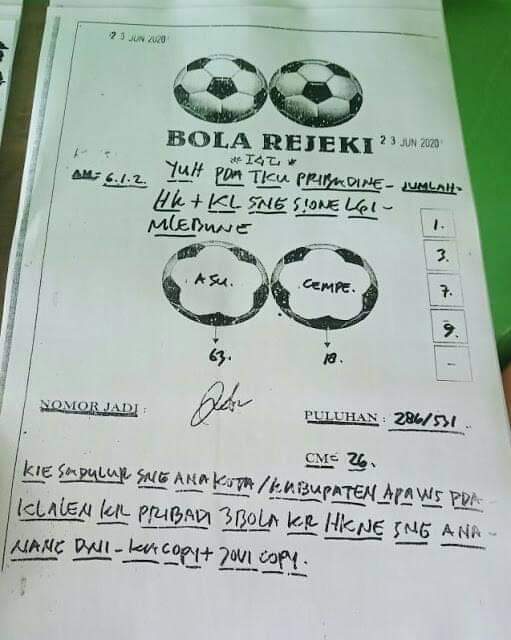 23 JUN 2020
BOLA REJEKI 23 JUN 2020
AM= 6.1.2. YUH PDA TKU PRIBADINE- JUMLAH=
HK + KL SNE SIONE LGI-
MLEBUNE
1.
3.
7.
9.
-
ASU. CEMPE.
63. 18.
NOMOR JADI :
PULUHAN : 286/531.
CM= 26.
KIE SADULUR SNE ANA KOTA/KABUPATEN APA WS PDA-
KLALEN KR PRIBADI 3BOLA KR HKNE SNE ANA-
NANG DNI-
COPY+ COPY.